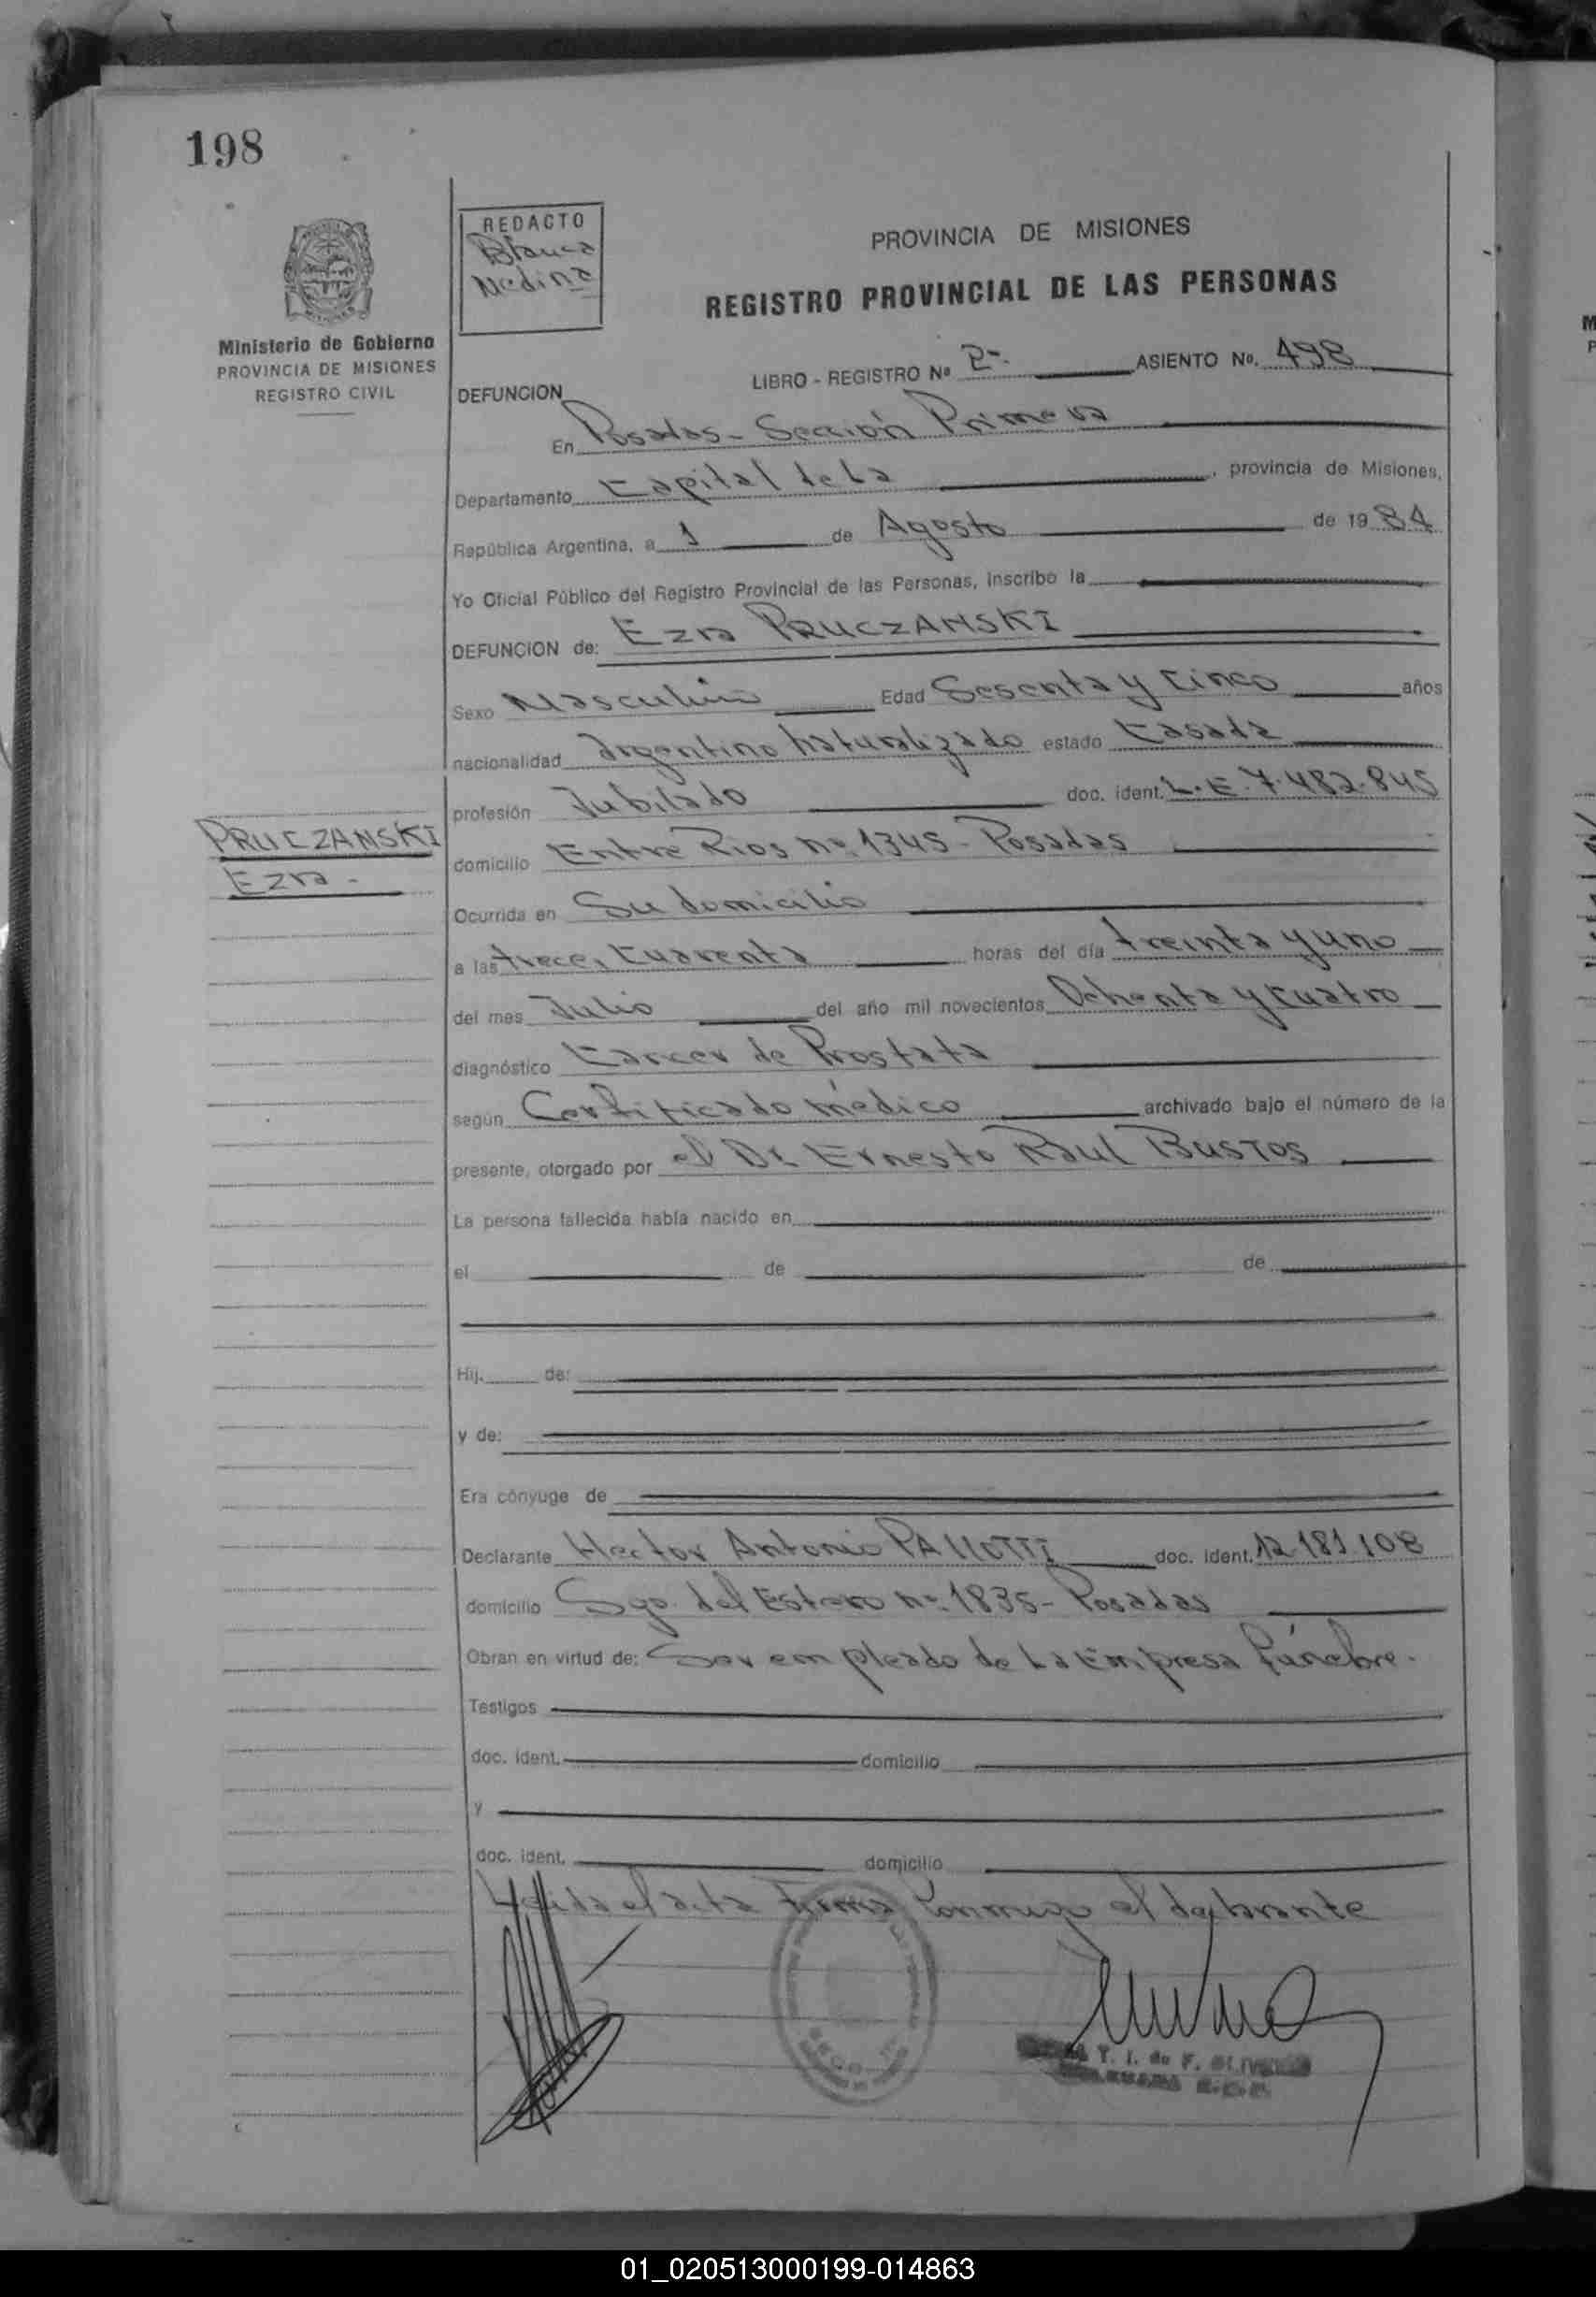 198
REDACTO
Blanca
Medina
Ministerio de Gobierno
PROVINCIA DE MISIONES
REGISTRO CIVIL
PROVINCIA DE MISIONES
REGISTRO PROVINCIAL DE LAS PERSONAS
LIBRO - REGISTRO Nº 2-. ASIENTO Nº. 498
DEFUNCION
En Posadas - Sección Primera
Departamento Capital de La , provincia de Misiones,
República Argentina, a 1 de Agosto de 1984
Yo Oficial Público del Registro Provincial de las Personas, inscribo la
DEFUNCION de: Ezra PRUCZANSKI
Sexo Masculino Edad Sesenta y Cinco años
nacionalidad Argentino Naturalizado estado Casada
profesión Jubilado doc. ident. L.E. 7.482.845
PRUCZANSKI
Ezra -
domicilio Entre Rios nº 1345 - Posadas
Ocurrida en Su domicilio
a las trece, Cuarenta horas del día treinta y uno
del mes Julio del año mil novecientos Ochenta y Cuatro
diagnóstico Cancer de Prostata
según Certificado médico archivado bajo el número de la
presente, otorgado por el Dr Ernesto Raul BUSTOS
La persona fallecida había nacido en
el de de
Hij. de:
y de:
Era cónyuge de
Declarante Hector Antonio PALLOTTI doc. ident. 12.181.108
domicilio Sgo. del Estero nº 1835 - Posadas
Obran en virtud de: Ser empleado de La Empresa fúnebre.
Testigos
doc. ident. domicilio
y
doc. ident. domicilio
Leida el acta Firma Conmigo el declarante
T. I. de F.
01_020513000199-014863